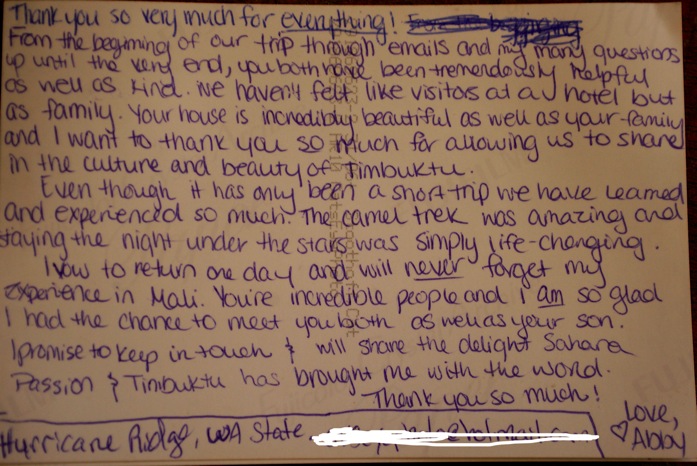 Thank you so very much for everything!
From the beginning of our trip through emails and my many questions
up until the very end, you both have been tremendously helpful
as well as kind. We haven't felt like visitors at a hotel but
as family. Your house is incredibly beautiful as well as your family
and I want to thank you so much for allowing us to share
in the culture and beauty of Timbuktu.
Even though it has only been a short trip we have learned
and experienced so much. The camel trek was amazing and
staying the night under the stars was simply life-changing.
I vow to return one day and will never forget my
experience in Mali. You're incredible people and I am so glad
I had the chance to meet you both as well as your son.
I promise to keep in touch & will share the delight Sahara
Passion & Timbuktu has brought me with the world.
Thank you so much!
Love,
♡ Abby
Hurricane Ridge, WA State